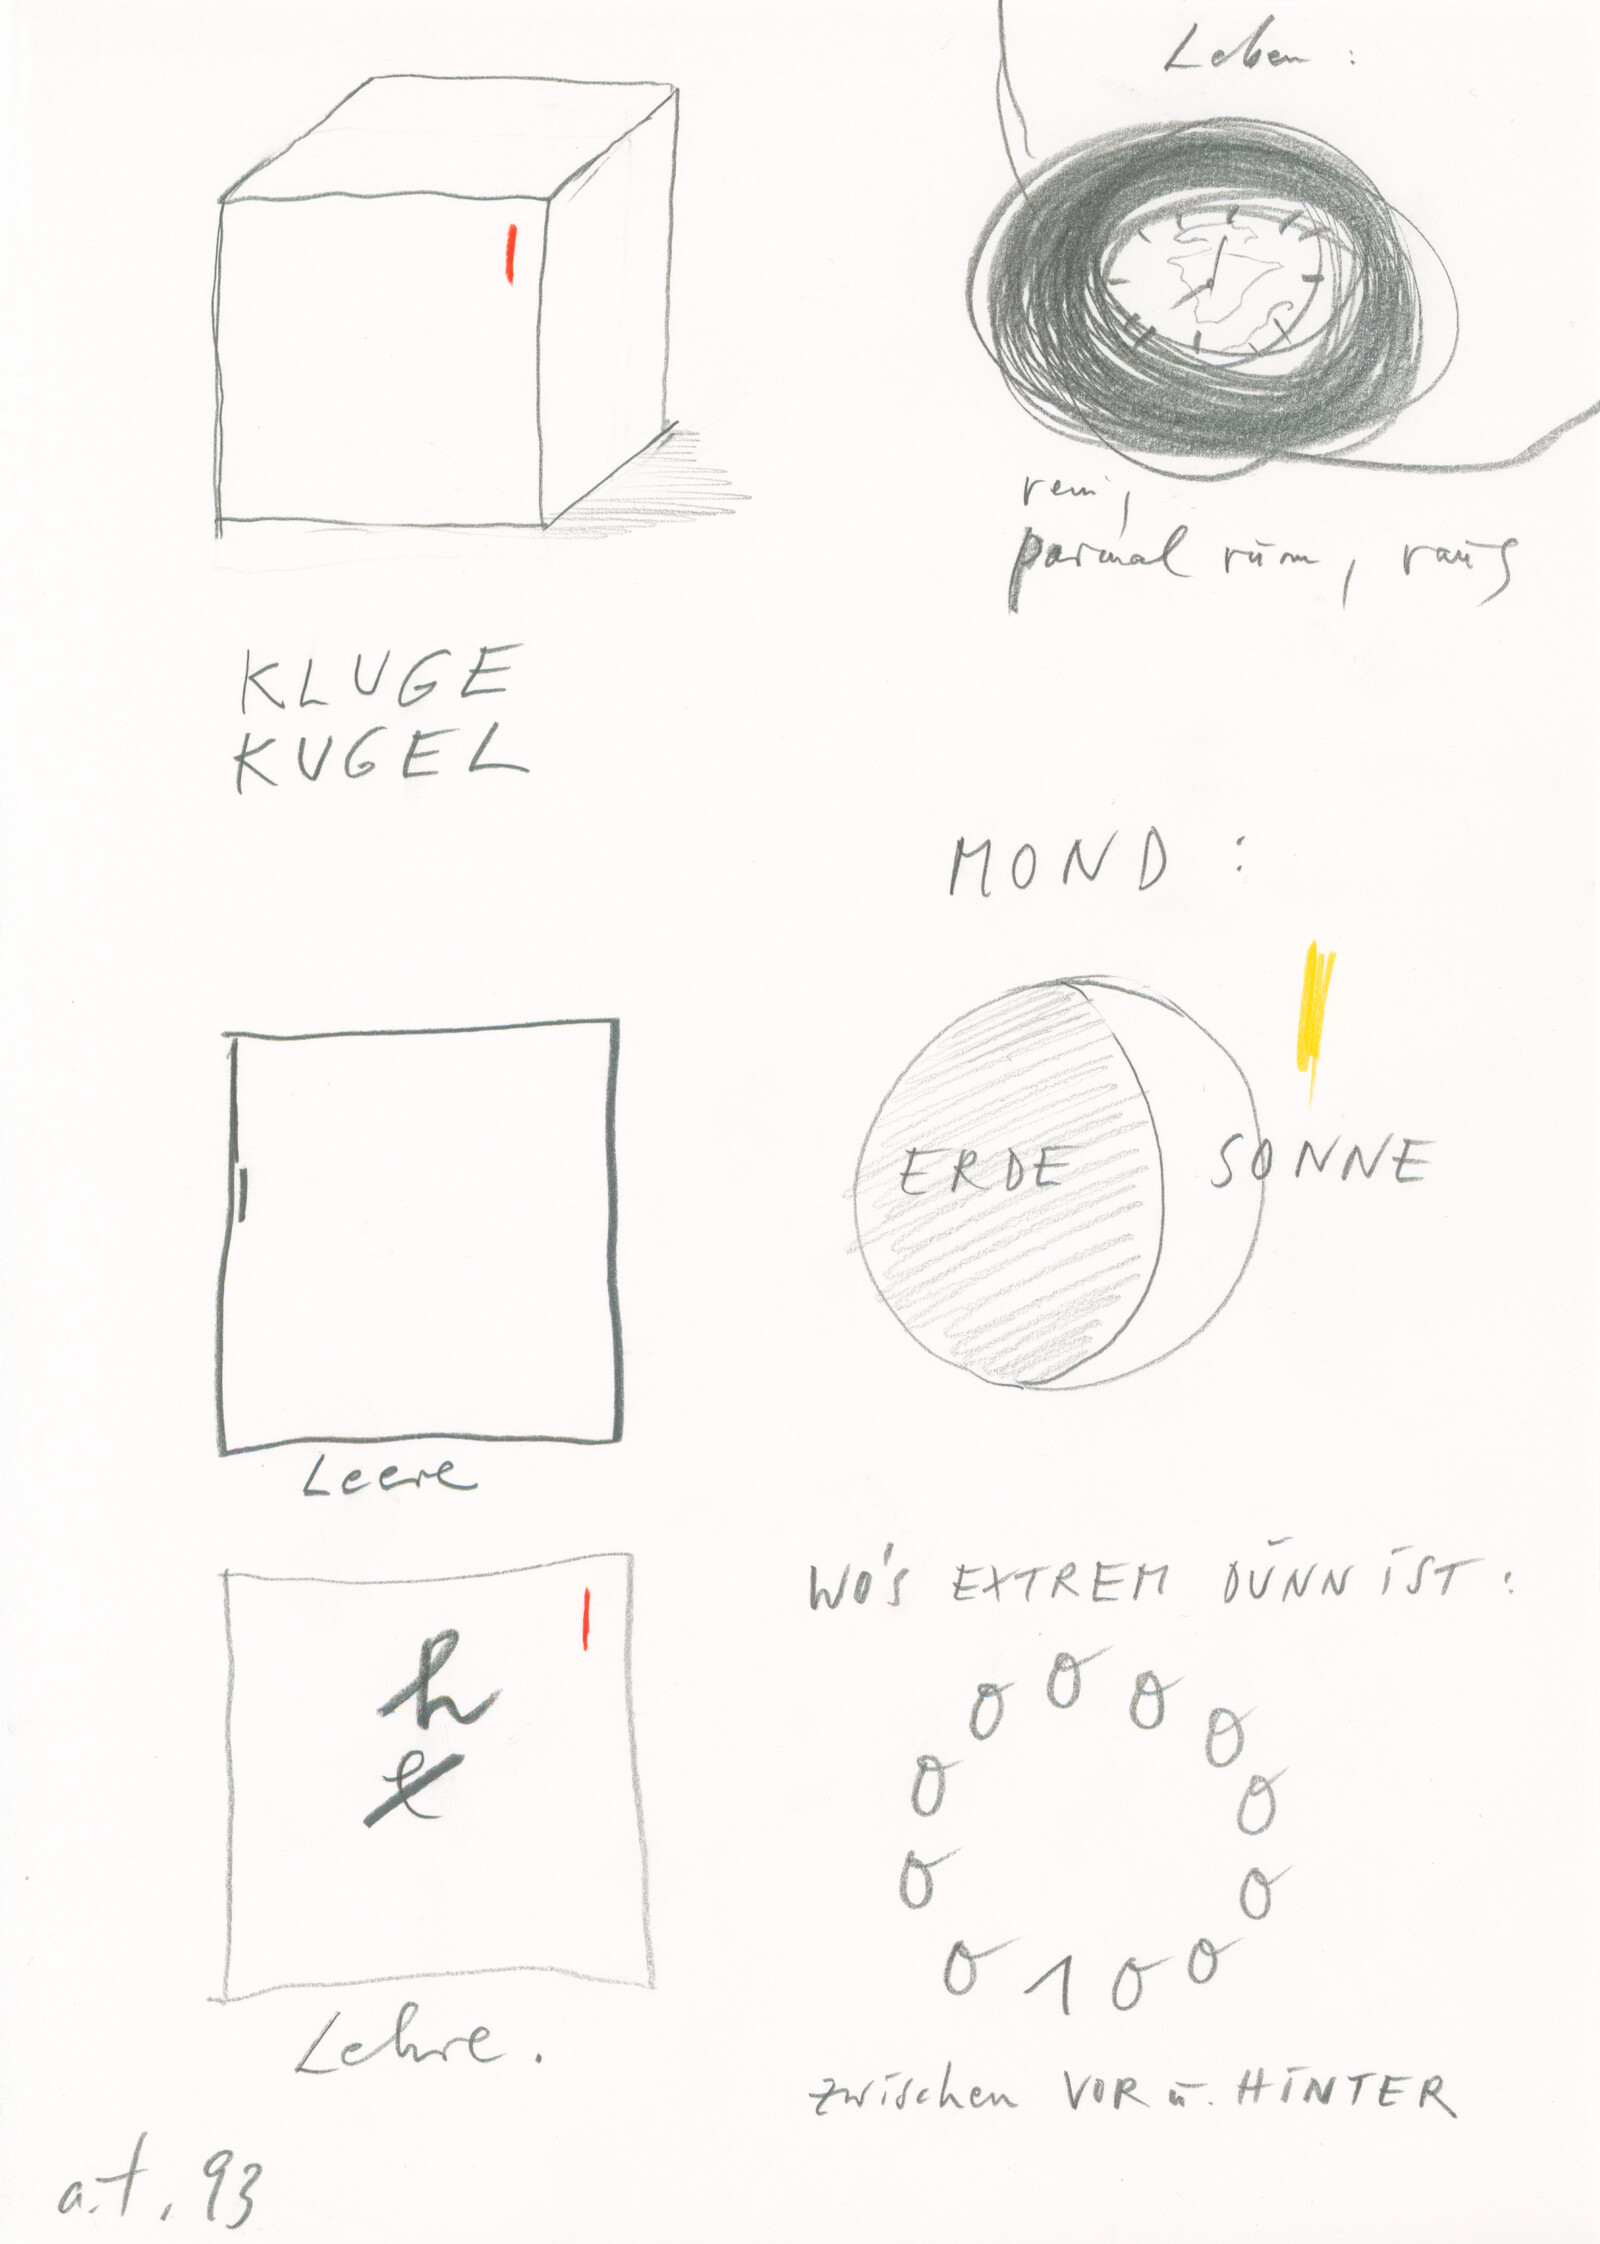 Leben:
rein,
paarmal rum, raus
KLUGE
KUGEL
MOND:
ERDE SONNE
Leere
h
e
Lehre.
WO'S EXTREM DÜNN IST:
0 0 0 0 0 0 0 0 1 0 0 0
zwischen VOR u. HINTER
a.t. 93